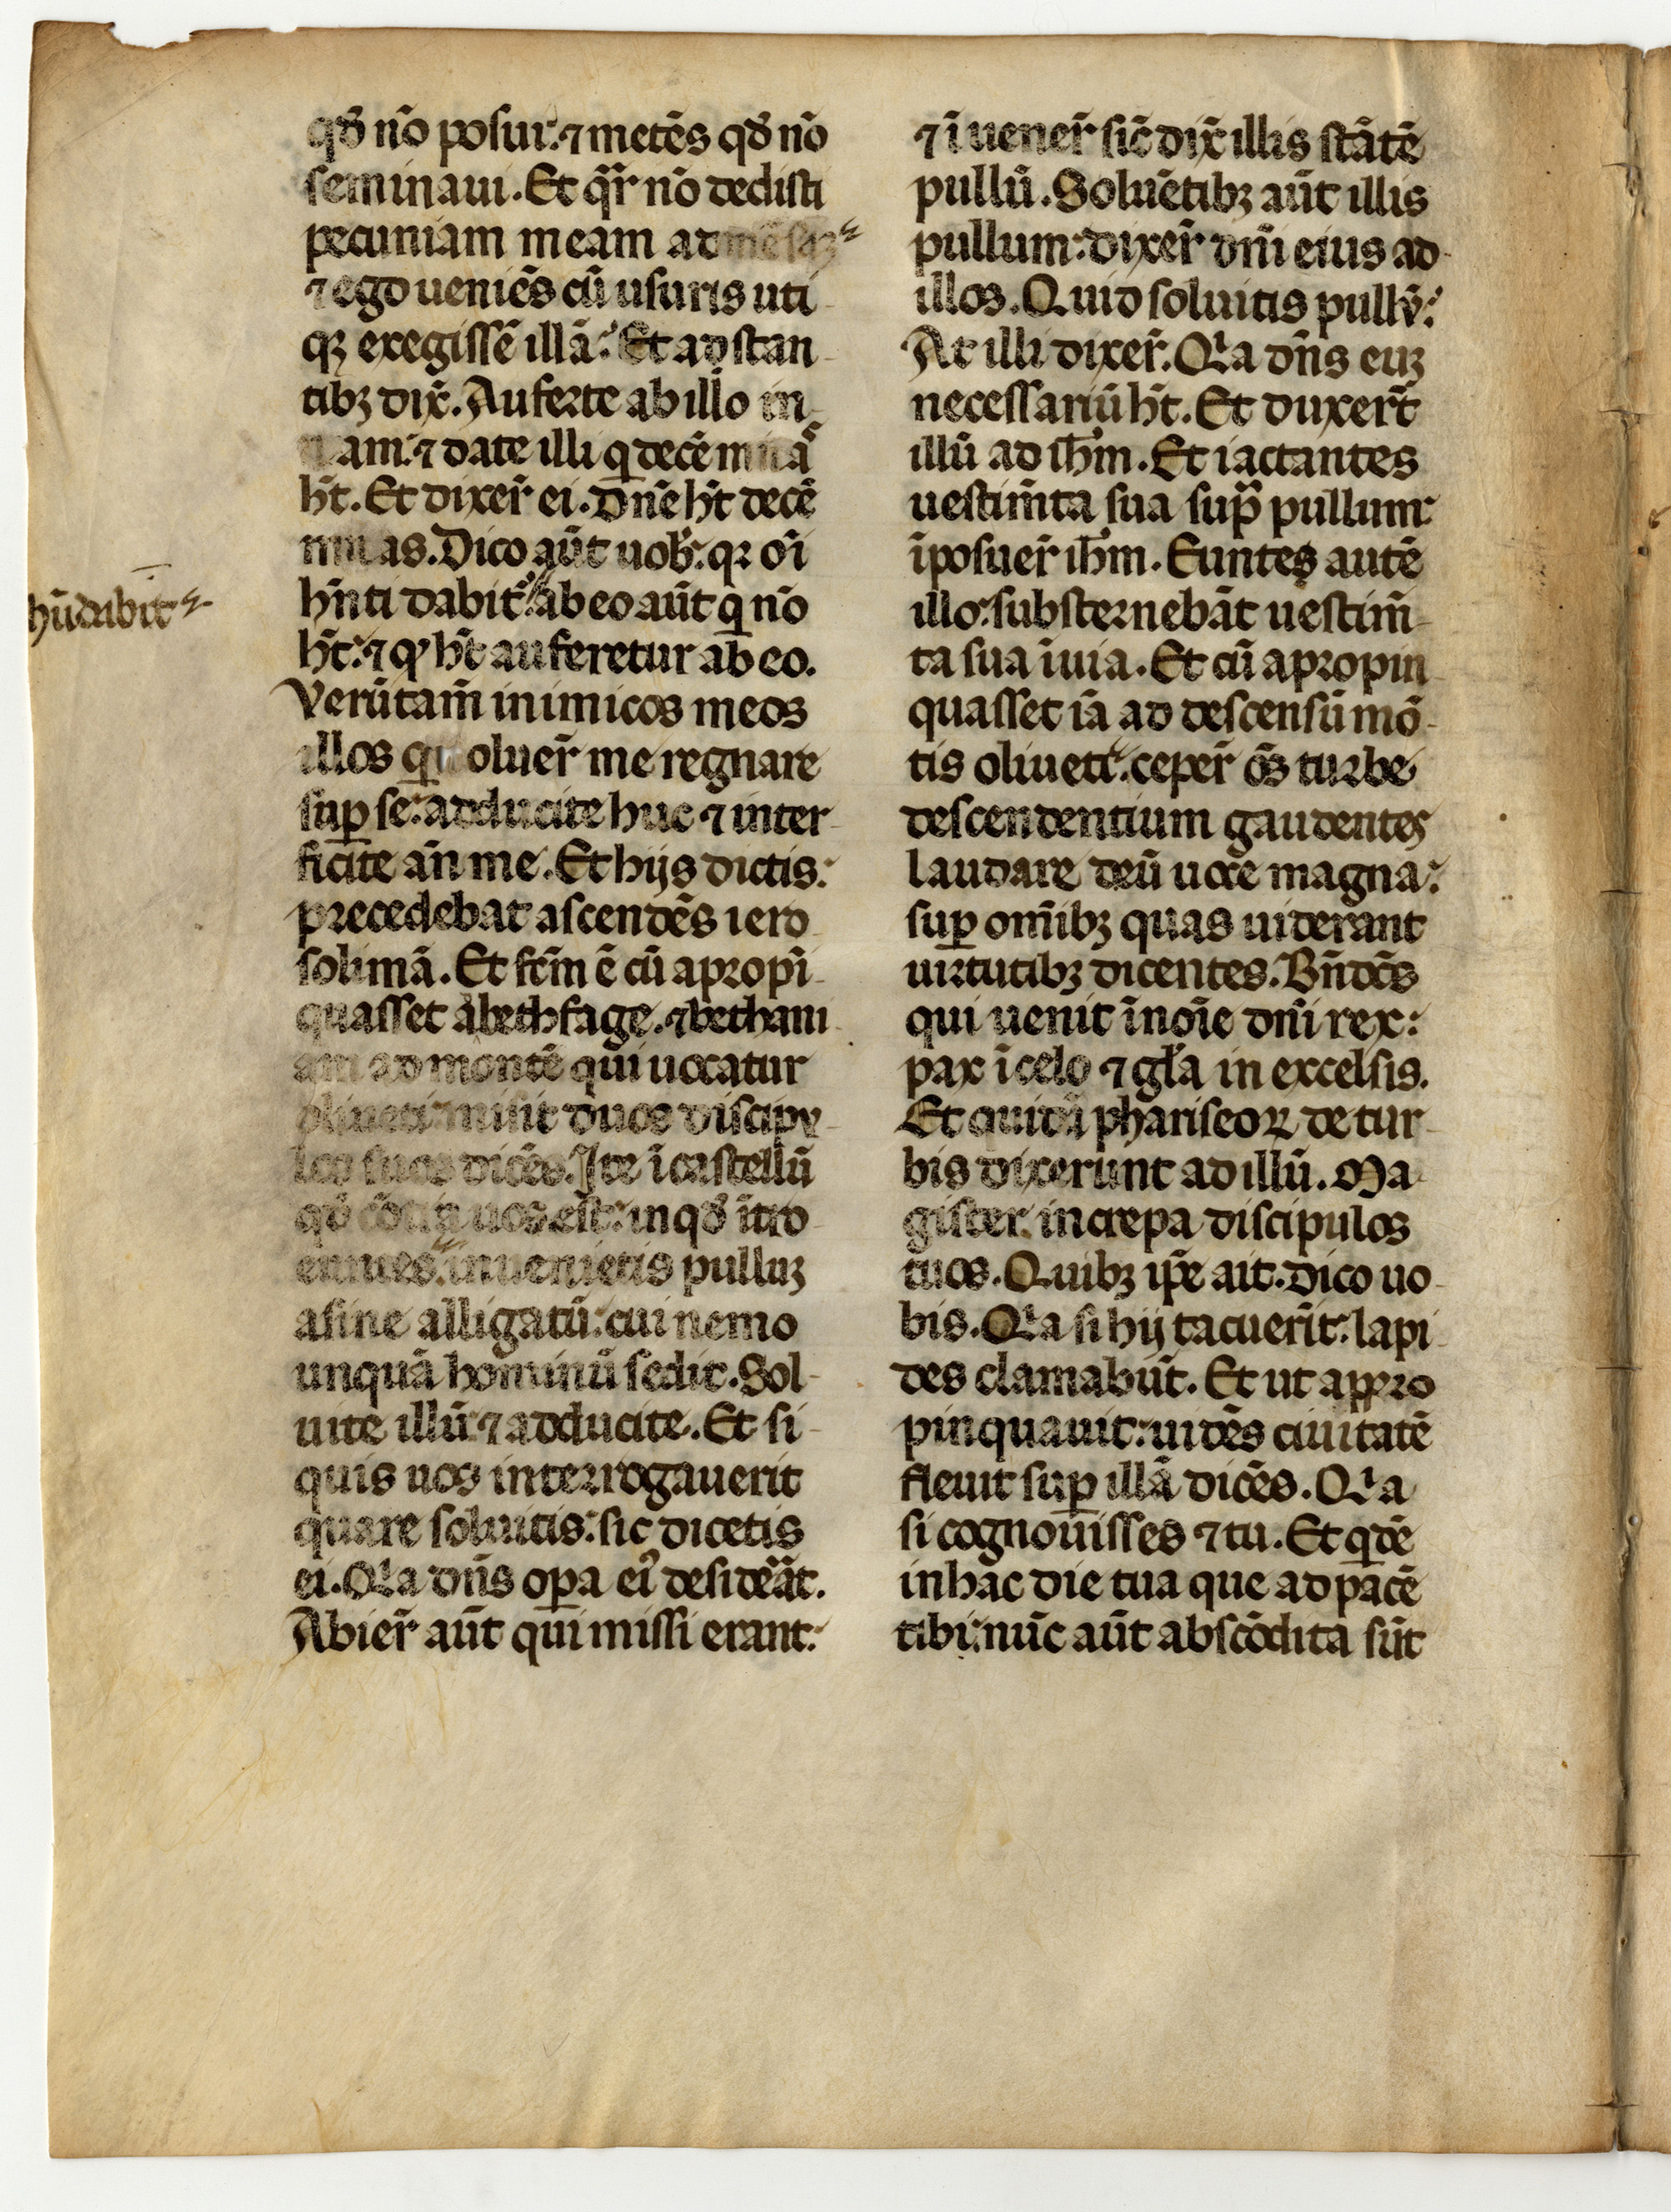 qd̄ nō posui: ⁊ metēs qd̄ nō
seminaui. Et qr̄ nō dedisti
pecuniam meam ad mēsaꝫ
⁊ ego ueniēs cū usuris uti
qꝫ exegissē illā: Et adstan
tibꝫ dix̄. Auferte ab illo m
nam: ⁊ date illi q̄ decē mnas
hт̄. Et dixer̄ ei. Dn̄e hт̄ decē
mnas. Dico aūt uob̄: qꝛ oī
hn̄ti dabit̄: ab eo aūt q̄ nō
hт̄: ⁊ qͦ hт̄ auferetur ab eo.
Verūtam̄ inimicos meos
illos qui noluer̄ me regnare
suꝑ se: adducite huc ⁊ inter
ficite an̄ me. Et hijs dictis:
precedebat ascendēs iero
solimā. Et fcm̄ ē cū apropī
quasset a bethfage. ⁊ bethani
am ad montē qui uocatur
oliueti: misit duos discipu
los suos dicēs. Ite ī castellū
qd̄ cōtra uos est: in qd̄ ītro
euntes: inuenietis pulluꝫ
asine alligatū: cui nemo
unquā hominū sedit. Sol
uite illū: ⁊ adducite. Et si
quis uos interrogauerit
quare soluitis: sic dicetis
ei. Qͥa dn̄s oꝑa eiꝰ desiderāt.
Abier̄ aūt qui missi erant:
hn̄ti dabit̄
⁊ īuener̄ sic̄ dix̄ illis stātē
pullū. Soluētibꝫ aūt illis
pullum: dixer̄ dn̄i eius ad
illos. Quid soluitis pullū:
At illi dixer̄. Qͥa dn̄s euꝫ
necessariū hт̄. Et duxer̄t
illū ad ihm̄. Et iactantes
uestim̄ta sua supͣ pullum:
īposuer̄ ihm̄. Euntes autē
illo: substernebāt uestim̄
ta sua ī uia. Et cū apropin
quasset iā ad descensū mō
tis oliueti: ceper̄ om̄s turbe
descendentium gaudentes
laudare deū uoce magna:
suꝑ om̄ibꝫ quas uiderant
uirtutibꝫ dicentes. Bn̄dc̄s
qui uenit ī noīe dn̄i rex:
pax ī celo ⁊ gl̄a in excelsis.
Et quidā phariseoꝝ de tur
bis dixerunt ad illū. Ma
gister increpa discipulos
tuos. Quibꝫ ip̄e ait. Dico uo
bis. Qͥa si hij tacuerīt: lapi
des clamabūt. Et ut appro
pinquauit: uidēs ciuitatē
fleuit suꝑ illā dicēs. Qͥa
si cognouisses ⁊ tu. Et qͥdē
in hac die tua que ad pacē
tibi: nūc aūt abscōdita sūt